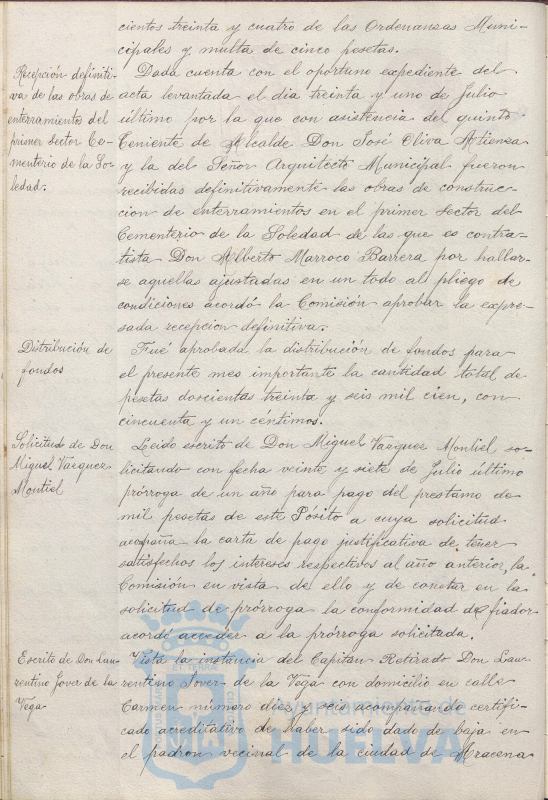 cientos treinta y cuatro de las Ordenanzas Muni-
cipales y multa de cinco pesetas.
Recepción definiti-
va de las obras de
enterramientos del
primer Sector Ce-
menterio de la So-
ledad.
Dada cuenta con el oportuno expediente del
acta levantada el dia treinta y uno de Julio
último por la que con asistencia del quinto
Teniente de Alcalde Don José Oliva Atienza
y la del Señor Arquitecto Municipal fueron
recibidas definitivamente las obras de construc-
cion de enterramientos en el primer Sector del
Cementerio de la Soledad de las que es contra-
tista Don Alberto Marroco Barrera por hallar-
se aquellas ajustadas en un todo al pliego de
condiciones acordó la Comisión aprobar la expre-
sada recepcion definitiva.
Distribución de
fondos
Fué aprobada la distribución de fondos para
el presente mes importante la cantidad total de
pesetas doscientas treinta y seis mil cien, con
cincuenta y un céntimos.
Solicitud de Don
Miguel Vazquez
Montiel
Leido escrito de Don Miguel Vazquez Montiel so-
licitando con fecha veinte y siete de Julio último
prórroga de un año para pago del prestamo de
mil pesetas de este Pósito a cuya solicitud
acompaña la carta de pago justificativa de tener
satisfechos los intereses respectivos al año anterior, la
Comisión en vista de ello y de constar en la
solicitud de prórroga la conformidad del fiador
acordó acceder a la prórroga solicitada.
Escrito de Don Lau-
rentino Jover de la
Vega
Vista la instancia del Capitan Retirado Don Lau-
rentino Jover de la Vega con domicilio en calle
Carmen número diez y seis acompañando certifi-
cado acreditativo de haber sido dado de baja en
el padron vecinal de la ciudad de Aracena
Ayuntamiento de
HUELVA